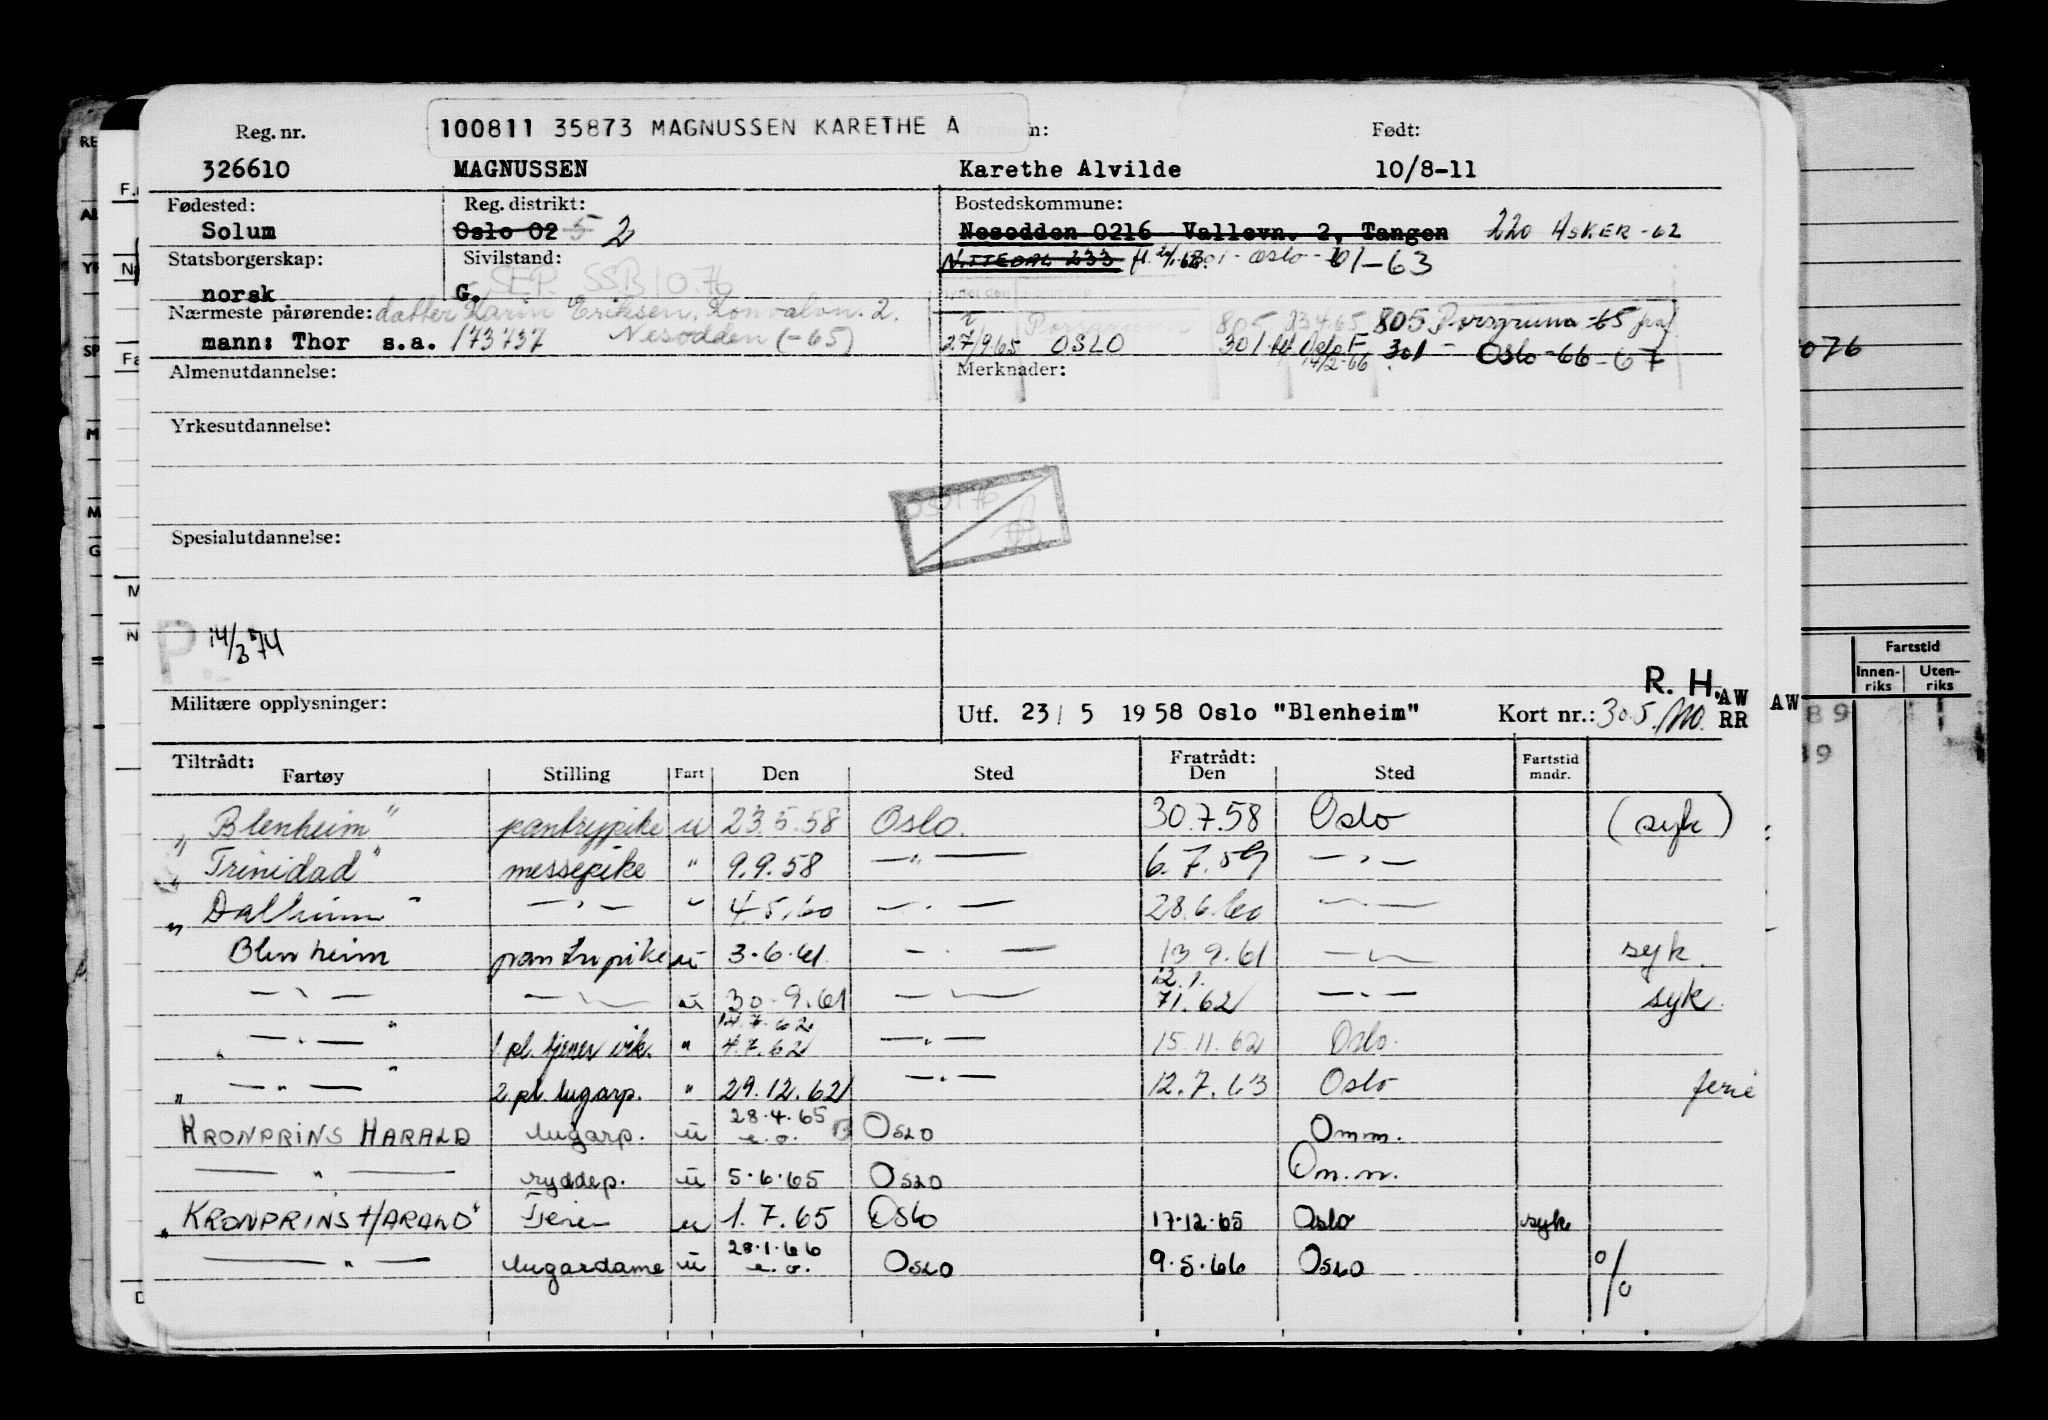 Reg. nr. 100811 35873 MAGNUSSEN KARETHE A n: Født:
326610 MAGNUSSEN Karethe Alvilde 10/8-11
Fødested: Reg. distrikt: Bostedskommune:
Solum Oslo 02 5 2 Nesodden 0216 Vallevn. 2, Tangen 220 ASKER -62
Statsborgerskap: Sivilstand: NITTEDAL 233 Oslo - 61-63
norsk G. SEP. SSB 10.76
Nærmeste pårørende: datter Karin Eriksen, 2. Porsgrunn 805 805 Porsgrunn -65
mann: Thor s.a. 173737 Nesodden (-65) 27/9 65 OSLO 301 14/2-66 301 - Oslo -66-67
Almenutdannelse: Merknader:
Yrkesutdannelse:
Spesialutdannelse:
P. 14/3 74
R. H. AW AW
Militære opplysninger: Utf. 23/ 5 1958 Oslo "Blenheim" Kort nr.: 305. RR
Tiltrådt: Fratrådt: Fartstid
Fartøy Stilling Fart Den Sted Den Sted mndr.
"Blenheim" pantrypike u 23.5.58 Oslo. 30.7.58 Oslo (syk)
"Trinidad" messepike " 9.9.58 —"— 6.7.59 —"—
"Dalheim" —"— " 4.5.60 —"— 28.6.60 —"—
Blenheim pantrypike u 3.6.61 —"— 13.9.61 —"— syk.
—"— —"— u 30.9.61 —"— 12.1. 71.62 —"— syk.
"—"—" 1 pl. tjener vik. " 14.7.62 4.7.62 —"— 15.11.62 Oslo.
"—"—" 2 pl. lugarp. " 29.12.62 —"— 12.7.63 Oslo ferie
KRONPRINS HARALD lugarp. u 28.4.65 e.o. B OSLO Omm.
—"— ryddep. u 5.6.65 OSLO Om.m.
"KRONPRINS HARALD" u 1.7.65 Oslo 17.12.65 Oslo syk
—"— lugardame u 28.1.66 e.o. OSLO 9.5.66 OSLO o/o
Fartstid
Innen-
riks
Uten-
riks
076
89
39